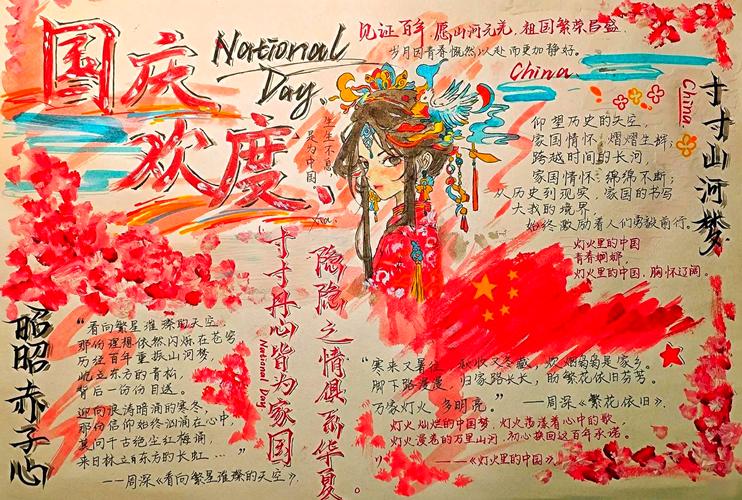 国庆
欢度
National
Day
见证百年,愿山河无恙,祖国繁荣昌盛.
岁月因青春慨然以赴而更加静好.
China
China.
生生不息,
是为中国
寸寸山河梦
仰望历史的天空,
家国情怀,熠熠生辉,
跨越时间的长河,
家国情怀,绵绵不断;
从历史到现实,家国的书写
大我的境界,
始终激励着人们勇毅前行.
灯火里的中国
青春婀娜,
灯火里的中国,胸怀辽阔.
昭昭赤子心
寸寸丹心皆为家国
National Day
隐隐之情俱系华夏。
“看向繁星璀璨的天空
那份理想依然闪烁在苍穹
历经百年重振山河梦,
屹立东方的青松,
背后一份份目送.
迎向浪涛暗涌的寒冬,
那份信仰始终汹涌在心中,
莫问千古绝尘红梅诵,
来日林立东方的长虹…”
——周深《看向繁星璀璨的天空》.
“寒来又暑往,秋收又冬藏,炊烟袅袅是家乡。
脚下路漫漫,归家路长长,盼繁花依旧芬芳。
万家灯火,多明亮。” ——周深《繁花依旧》.
灯火灿烂的中国梦,灯火荡漾着心中的歌
灯火漫卷的万里山河,初心换回这百年承诺。
——《灯火里的中国》